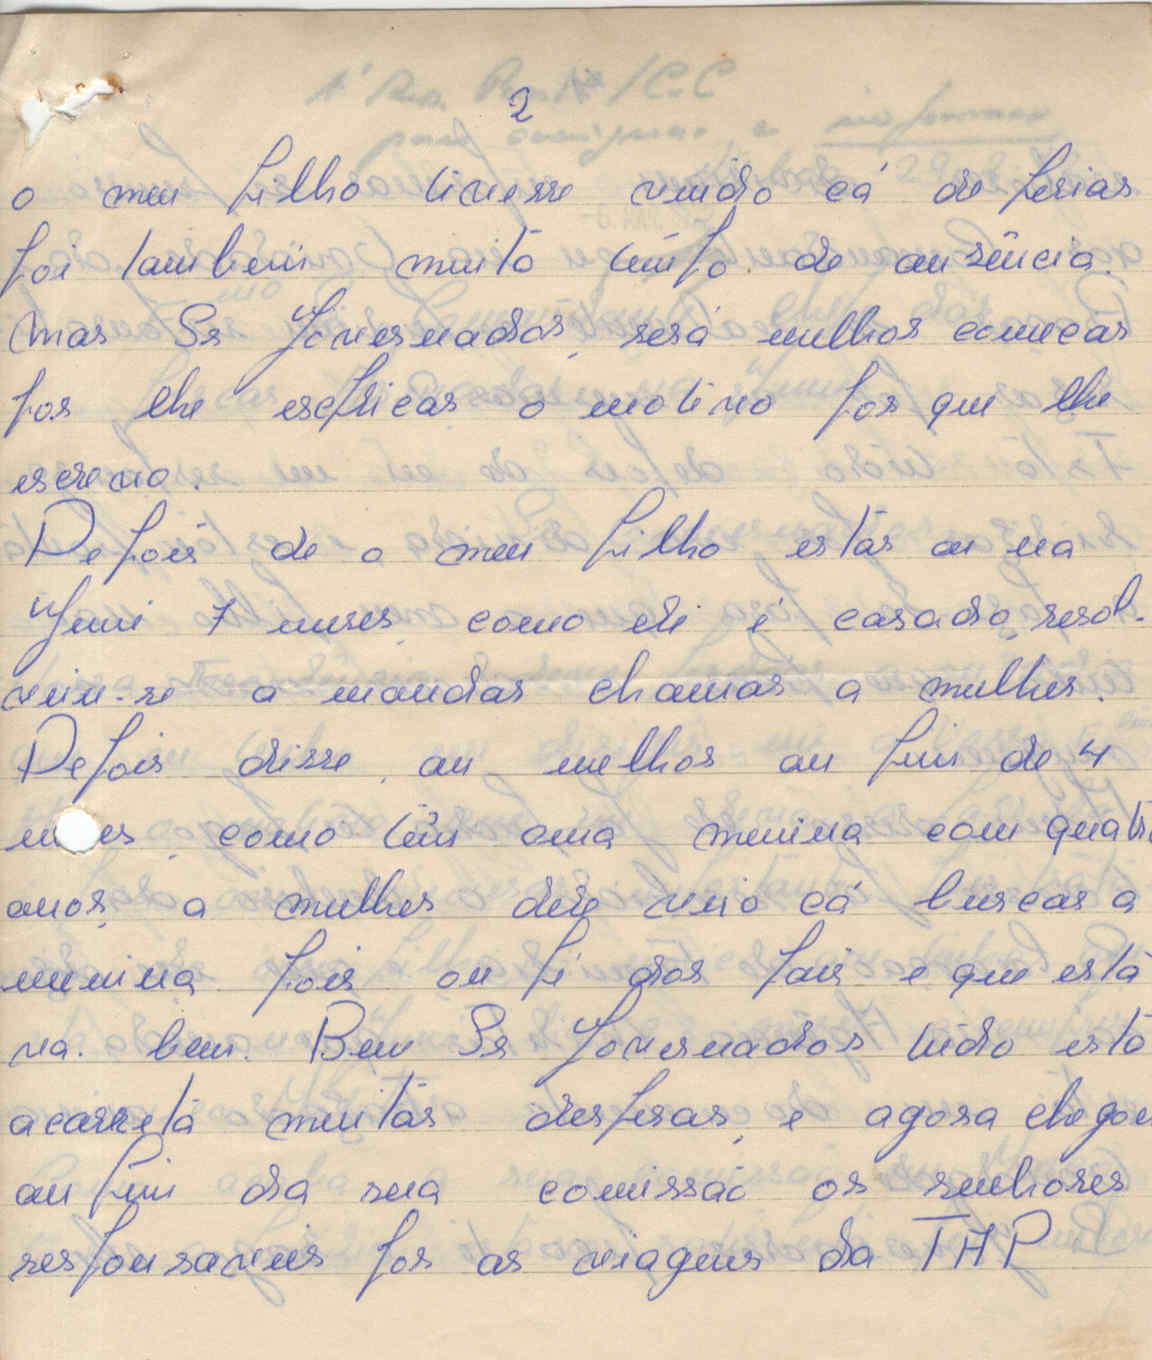 2
o meu filho tivesse vindo cá de ferias
foi tambem muito têmpo de ausência.
mas Sr Governador, será melhor comecar
por lhe esplicar o motivo por que lhe
escrevo.
Depois de o meu filho estár au na
Guiné 7 meses, como ele é casado, resol-
veu-se a mandar chamar a mulher.
Depois disse, au melhor au fim de 4
como têm oma menina com quatro
anos, a mulher dele veio cá buscar a
menina pois ou pé dos pais e que está
va. bem. Bem Sr Governador tudo está
acarretá muitas despesas, e agora chegou
au fim da sua comissão os senhores
responsaveis por as viagens da TAP